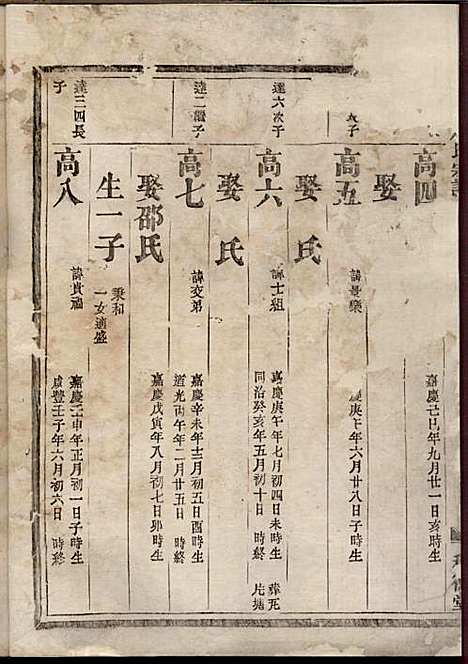 高四
嘉慶己巳年九月廿一日亥時生
娶
次子
高五
諱景樂
慶庚午年六月廿八日子時生
娶氏
達六次子
高六
諱士組
嘉慶庚午年七月初四日未時生
同治癸亥年五月初十日
葬瓦
片塘
娶氏
達二繼子
高七
諱交弟
嘉慶辛未年十二月初五日酉時生
道光丙午年二月廿五日時終
娶邵氏
嘉慶戊寅年八月初七日卯時生
生一子
秉和
一女適盛
達三四長
子
高八
諱貴福
嘉慶壬申年正月初一日子時生
咸豐壬子年六月初六日時終